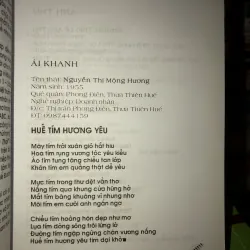 ÁI KHANH
Tên thật: Nguyễn Thị Mộng Hương
Năm sinh: 1955
Quê quán: Phong Điền, Thừa Thiên Huế
Nghề nghiệp: Doanh nhân
Đ/c: Thị trấn Phong Điền, Thừa Thiên Huế
ĐT: 0987444159
HUẾ TÍM HƯƠNG YÊU
Mây tím trôi xuân gió hắt hiu
Hoa tím rụng vương tóc yêu kiều
Áo tím tung tăng chiều tan lớp
Khăn tím em quàng thật dễ yêu
Mực tím trong thư dệt vần thơ
Nắng tím qua khung cửa hững hờ
Mắt tím bâng khuâng vì nhung nhớ
Môi tím em cười anh ngẩn ngơ
Chiều tím hoàng hôn đẹp như mơ
Lụa tím dáng sông trôi lững lờ
Đường tím ngập ngừng chân vương nắng
Huế tím hương yêu tím dại khờ